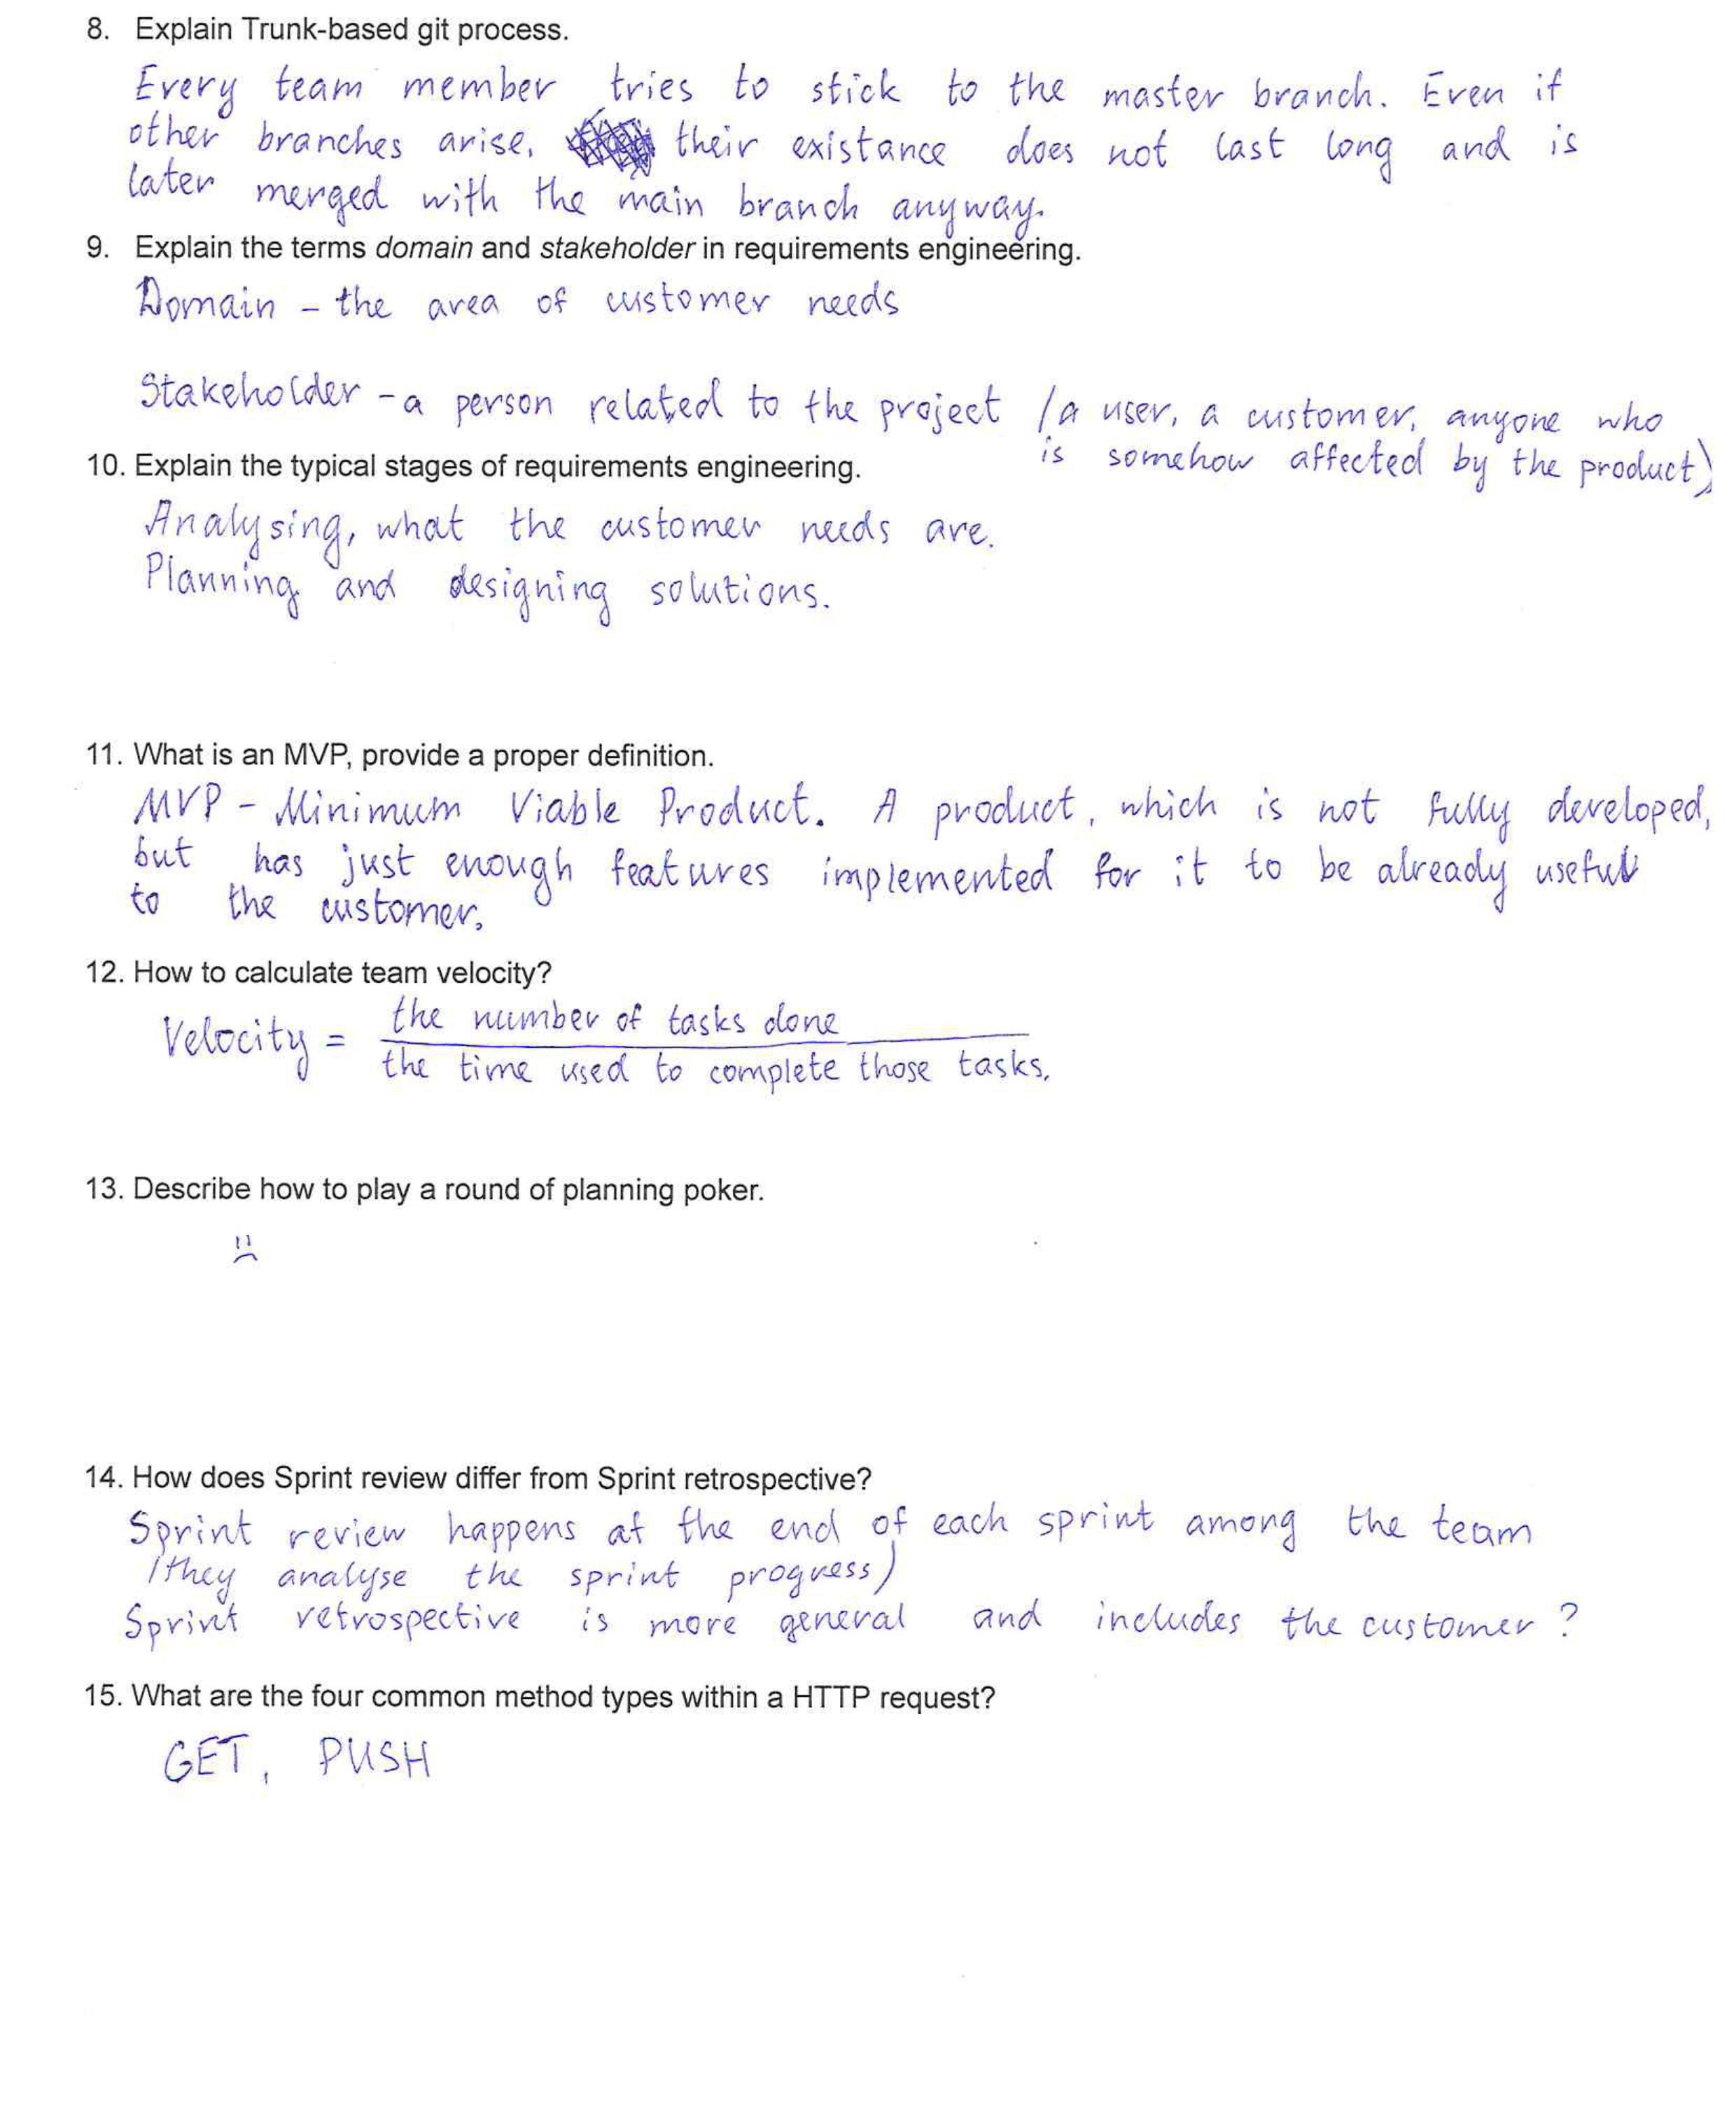 8. Explain Trunk-based git process.
Every team member tries to stick to the master branch. Even if
other branches arise, their existance does not last long and is
later merged with the main branch anyway.
9. Explain the terms domain and stakeholder in requirements engineering.
Domain - the area of customer needs
Stakeholder - a person related to the project (a user, a customer, anyone who
is somehow affected by the product)
10. Explain the typical stages of requirements engineering.
Analysing, what the customer needs are.
Planning and designing solutions.
11. What is an MVP, provide a proper definition.
MVP - Minimum Viable Product. A product, which is not fully developed,
but has just enough features implemented for it to be already useful
to the customer.
12. How to calculate team velocity?
Velocity = the number of tasks done
the time used to complete those tasks.
13. Describe how to play a round of planning poker.
14. How does Sprint review differ from Sprint retrospective?
Sprint review happens at the end of each sprint among the team
(they analyse the sprint progress)
Sprint retrospective is more general and includes the customer?
15. What are the four common method types within a HTTP request?
GET, PUSH